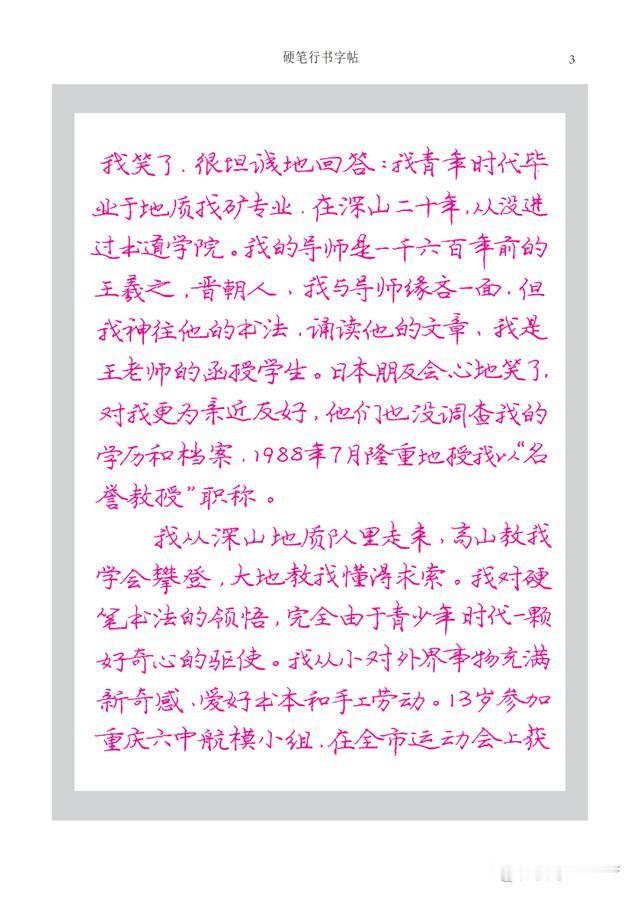 硬笔行书字帖
3
我笑了、很坦诚地回答：我青年时代毕
业于地质找矿专业、在深山二十年，从没进
过书通学院。我的导师是一千六百年前的
王羲之，晋朝人、我与导师缘吝一面、但
我神往他的书法、诵读他的文章、我是
王老师的函授学生。日本朋友会心地笑了，
对我更为亲近友好，他们也没调查我的
学历和档案、1988年7月隆重地授我以“名
誉教授”职称。
我从深山地质队里走来，高山教我
学会攀登，大地教我懂得求索。我对硬
笔书法的领悟，完全由于青少年时代一颗
好奇心的驱使。我从小对外界事物充满
新奇感、爱好书本和手工劳动。13岁参加
重庆六中航模小组、在全市运动会上获